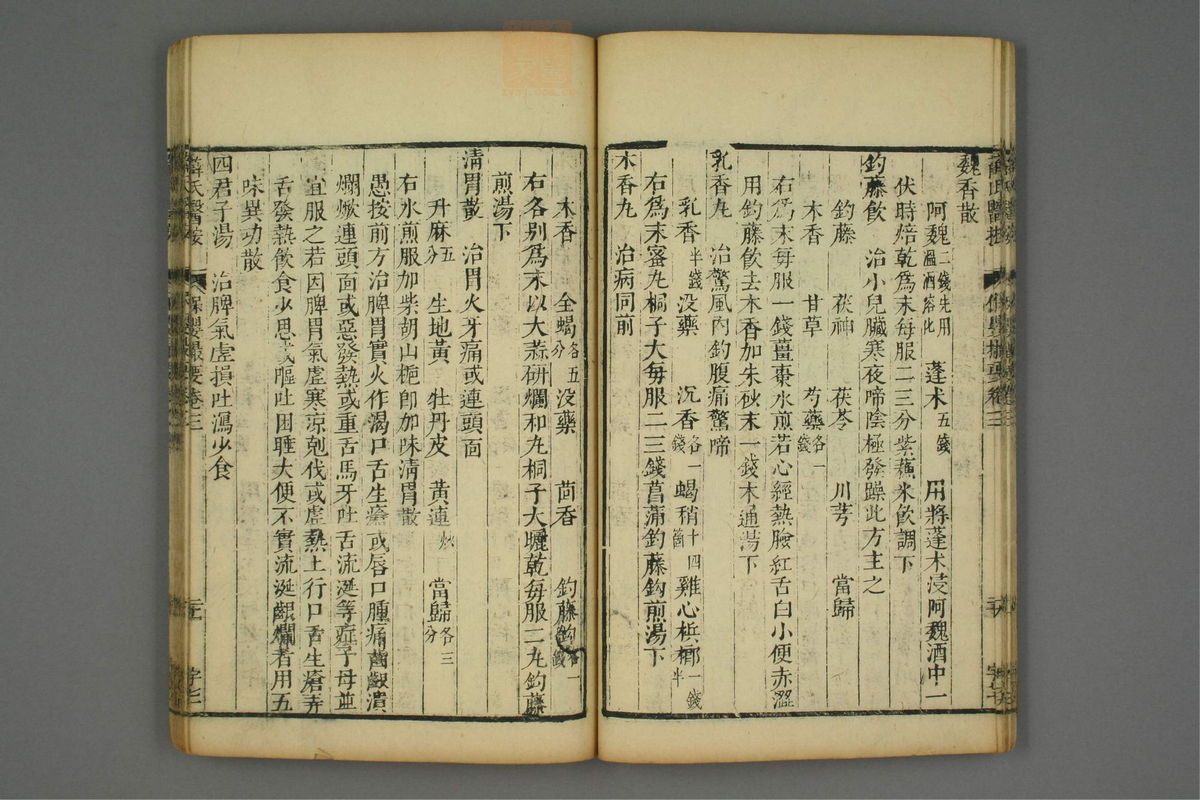 魏香散
阿魏二錢先用溫酒溶化 蓬朮五錢 用將蓬朮浸阿魏酒中一
伏時焙乾爲末每服二三分紫蘇米飲調下
鈞藤飲 治小兒臟寒夜啼陰極發躁此方主之
鈞藤 茯神 茯苓 川芎 當歸
木香 甘草 芍藥各一錢
右爲末每服一錢薑棗水煎若心經熱臉紅舌白小便赤澀
用鈞藤飲去木香加朱砂末一錢木通湯下
乳香丸 治驚風內鈞腹痛驚啼
乳香半錢 沒藥 沉香各一錢 蝎稍十四箇 雞心檳榔一錢半
右爲末蜜丸桐子大每服二三錢菖蒲鈞藤鈎煎湯下
木香丸 治病同前
木香 全蝎各五分 沒藥 茴香 鈞藤鈎各一錢
右各別爲末以大蒜研爛和丸桐子大曬乾每服二丸鈞藤
煎湯下
清胃散 治胃火牙痛或連頭面
升麻五分 生地黃 牡丹皮 黃連炒 當歸各三分
右水煎服加柴胡山梔卽加味清胃散
愚按前方治脾胃實火作渴口舌生瘡或唇口腫痛齒齦潰
爛焮連頭面或惡發熱或重舌馬牙吐舌流涎等症子母並
宜服之若因脾胃氣虛寒涼剋伐或虛熱上行口舌生瘡弄
舌發熱飲食少思或嘔吐困睡大便不實流涎齦爛者用五
味異功散
四君子湯 治脾氣虛損吐瀉少食
薛氏醫按 保嬰撮要卷三